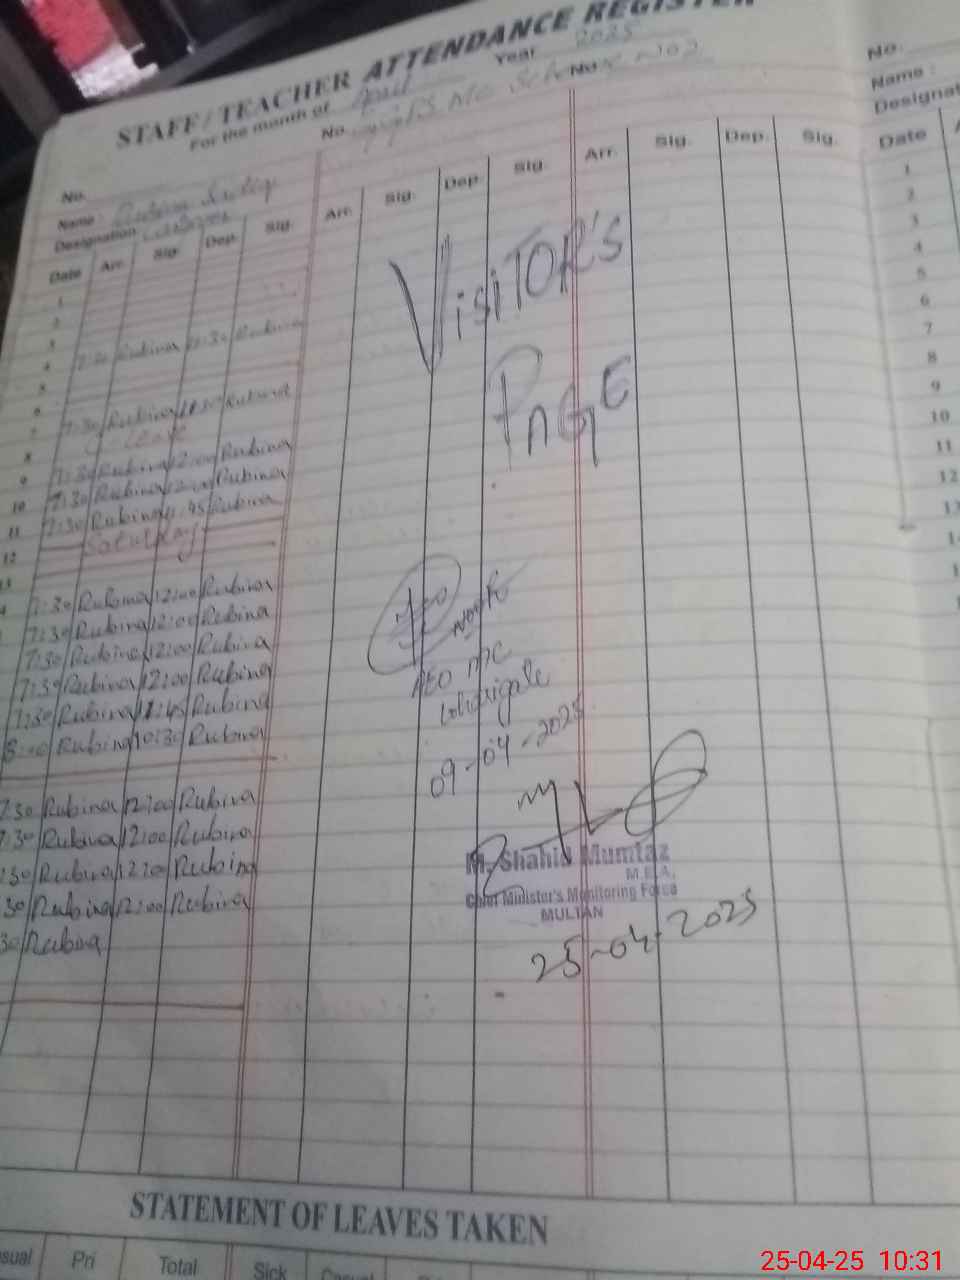 STAFF / TEACHER ATTENDANCE REGISTER
For the month of April Year 2025
No. No.
No.
Name : Rubina
Designation
Date Arr. Sig. Dep. Sig. Arr. Sig. Dep. Sig. Arr. Sig. Dep. Sig.
1
2
3
4 7:30 Rubina 11:30 Rubina
5
6
7 7:30 Rubina Rubina
8 Leave
9 7:30 Rubina 12:00 Rubina
10 7:30 Rubina 12:00 Rubina
11 7:30 Rubina 11:45 Rubina
12 Saturday
13
7:30 Rubina 12:00 Rubina
7:30 Rubina 12:00 Rubina
7:30 Rubina 12:00 Rubina
7:30 Rubina 12:00 Rubina
7:30 Rubina 11:45 Rubina
8:00 Rubina 10:30 Rubina
7:30 Rubina 12:00 Rubina
7:30 Rubina 12:00 Rubina
:30 Rubina 12:00 Rubina
30 Rubina 12:00 Rubina
30 Rubina
VISITOR'S
PAGE
AEO MC
09-04-2025
M. Shahid Mumtaz
M.E.A.
Chief Minister's Monitoring Force
MULTAN
25-04-2025
No.
Name :
Designat
Date
1
2
3
4
5
6
7
8
9
10
11
12
STATEMENT OF LEAVES TAKEN
sual Pri Total Sick Casual
25-04-25 10:31